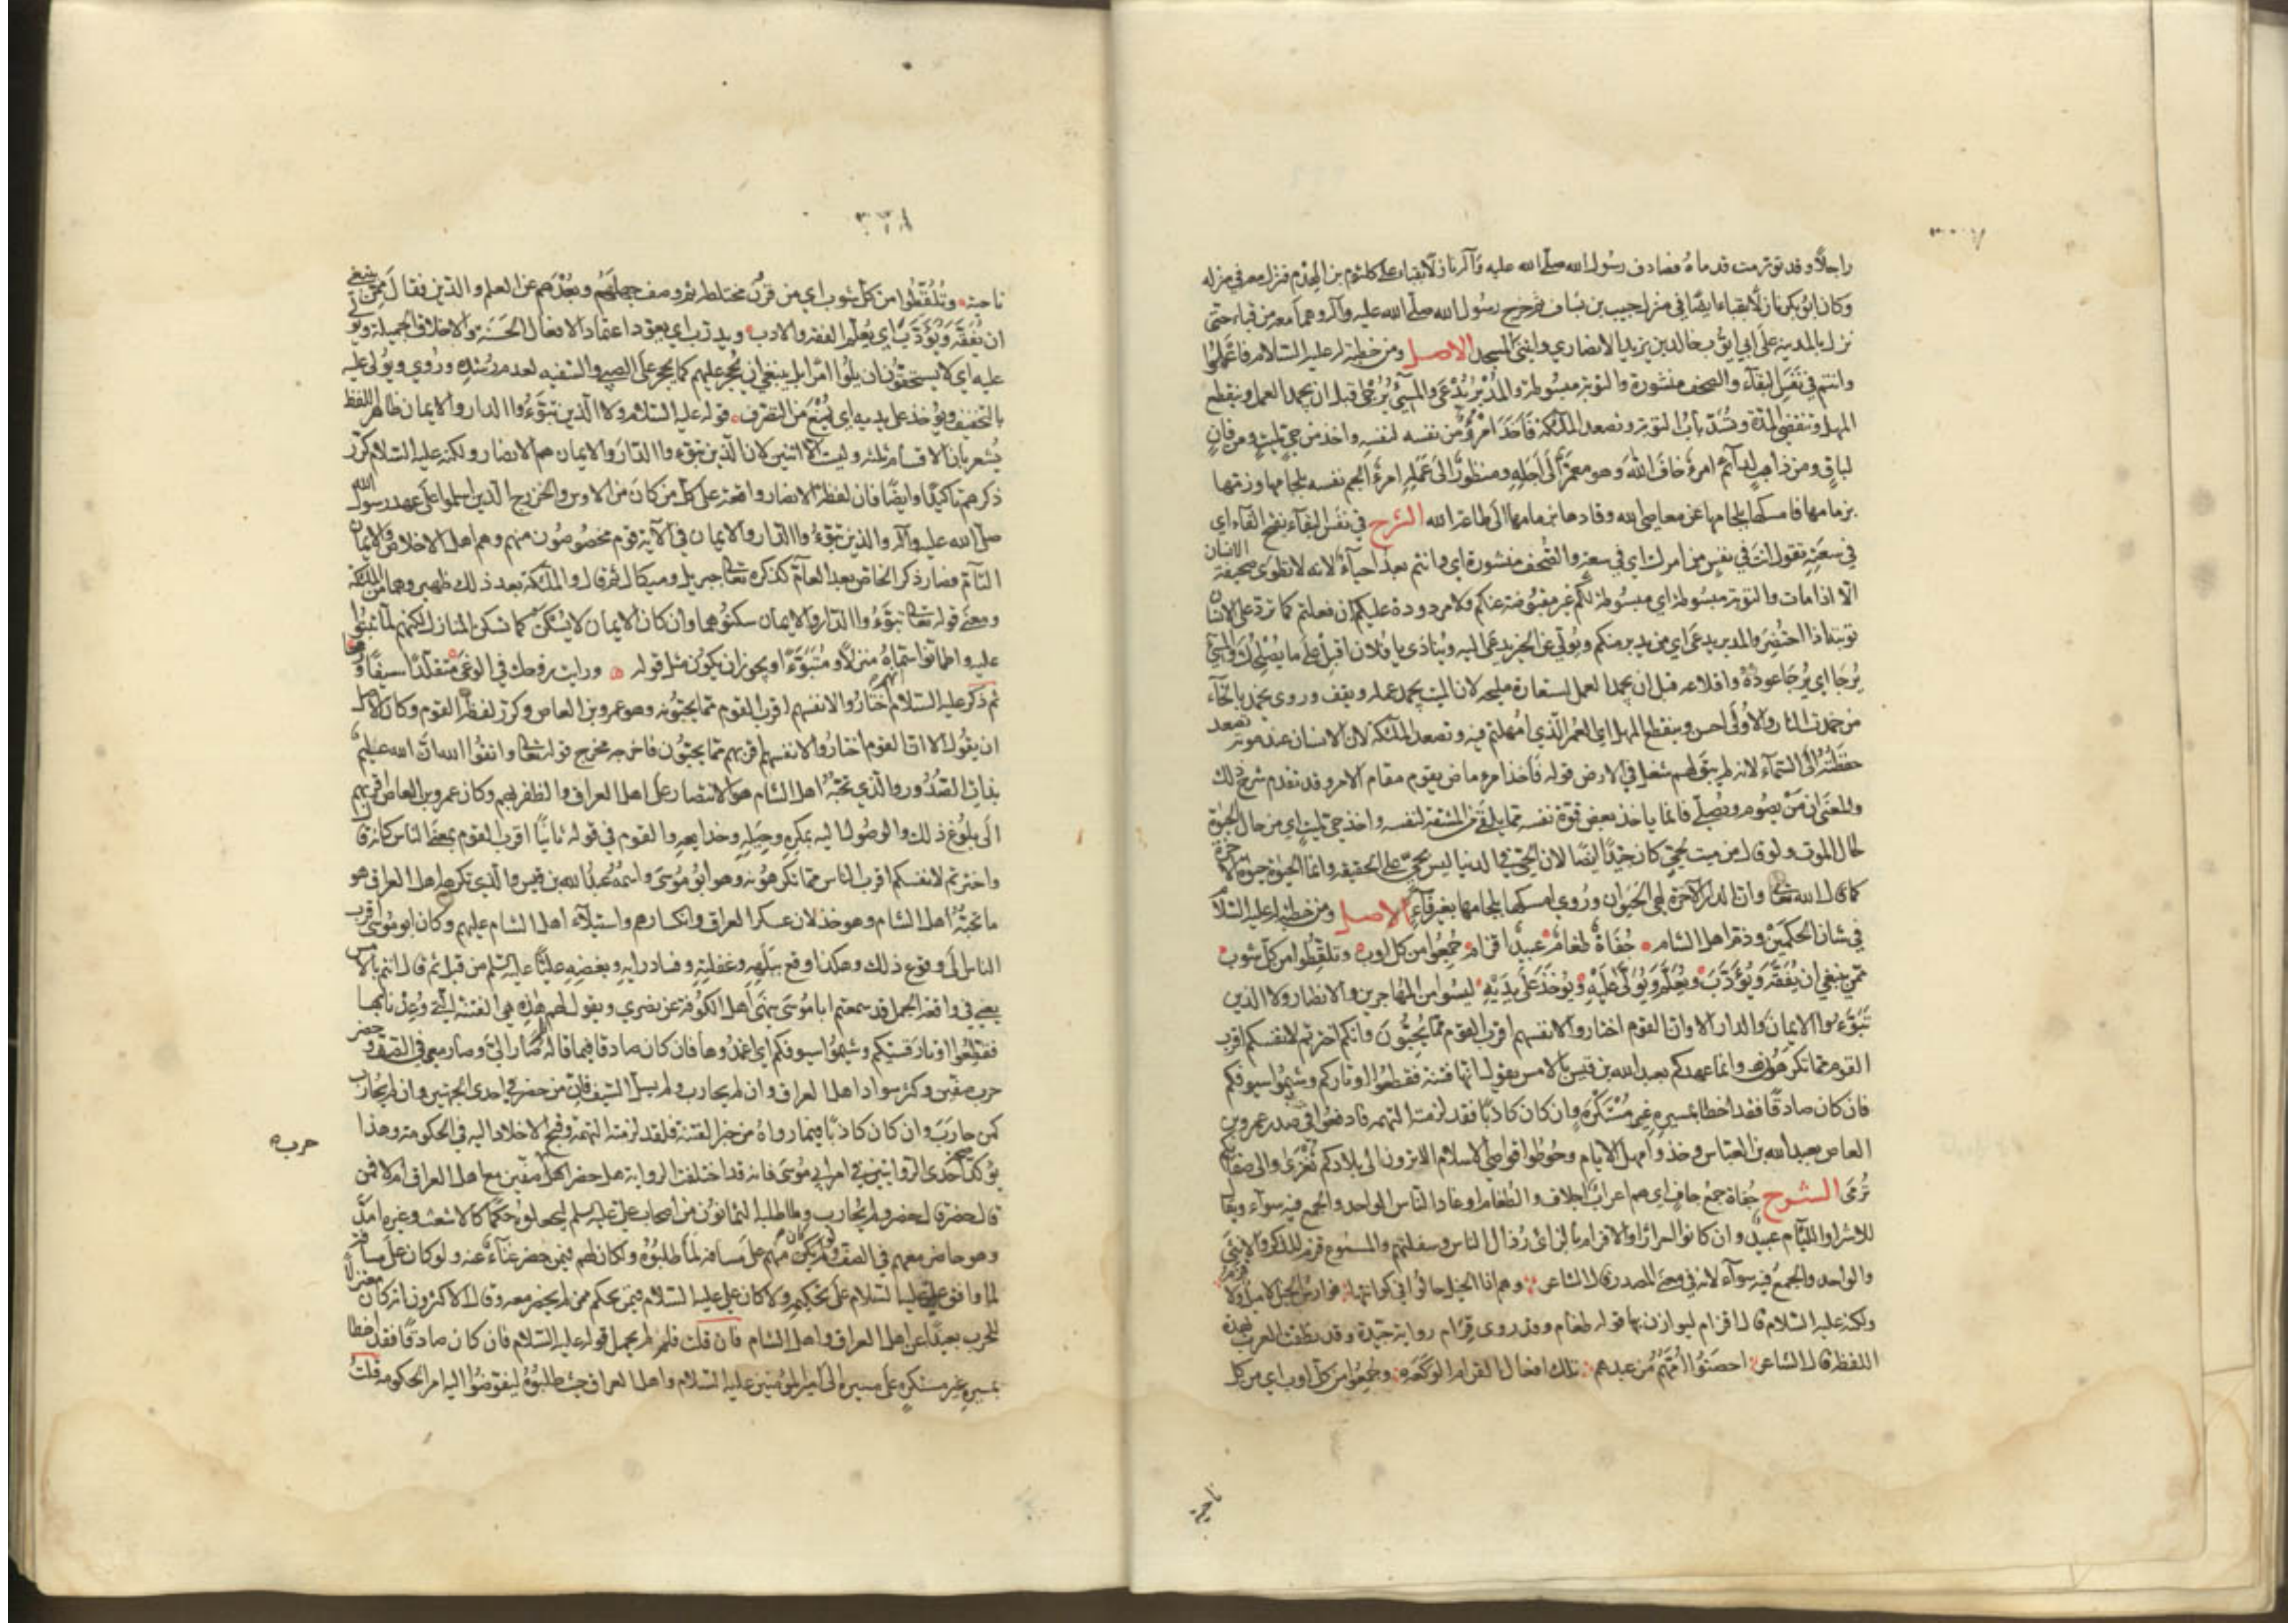 راجلا وقد تورمت قدماه فصادف رسول الله صلى الله عليه وآله نازلا بقباء على كلثوم بن الهدم فنزل معه في منزله
وكان ابو بكر نازلا بقباء ايضا في منزل حبيب بن يساف ثم خرج رسول الله صلى الله عليه وآله وهما معه من قباء حتى
نزل بالمدينة على ابي ايوب خالد بن يزيد الانصاري وابتنى المسجد الاصل ومن خطبة له عليه السلام فاعملوا
وانتم في نفس البقآء والصحف منشورة والتوبة مبسوطة والمدبر يدعى والمسيئ يرجى قبل ان يخمد العمل وينقطع
المهل وتنقضي المدة وتسد باب التوبة وتصعد الملئكة فاخذ امرؤ من نفسه لنفسه واخذ من حي لميت ومن فان
لباق ومن ذاهب لدآئم امرؤ خاف الله وهو معمر الى اجله ومنظور الى عمله امرؤ الجم نفسه بلجامها وزمها
بزمامها فامسكها بلجامها عن معاصي الله وقادها بزمامها الى طاعة الله الشرح في نفس البقآء بفتح الفآء اي
في سعته تقول انت في نفس من امرك اي في سعة والصحف منشورة اي وانتم بعد احيآء لانه لا تطوى صحيفة الانسان
الا اذا مات والتوبة مبسوطة اي مبسوطة لكم غير مقبوضة عنكم ولا مردودة عليكم ان فعلتم كما ترد على الانسان
توبته اذا احتضر والمدبر يدعى اي من يدبر منكم ويولي عن الخير يدعى اليه وينادى يا فلان اقبل على ما يصلحك والمسيئ
يرجا اي يرجا عوده واقلاعه قبل ان يخمد العمل استعارة مليحة لان الميت يخمد عمله ويقف وروي يخمد بالخآء
من خمدت النار والاولى احسن وينقطع المهل اي العمر الذي امهلتم فيه وتصعد الملئكة لان الانسان عند موته تصعد
حفظته الى السمآء لانه لم يبق لهم شغل في الارض قوله فاخذ امرء ماض يقوم مقام الامر وقد تقدم شرح ذلك
والمعنى ان من يصوم ويصلي فانما ياخذ بعض قوة نفسه مما يلقى من المشقة لنفسه واخذ حي لميت اي من حال الحيوة
لحال الموت ولو قال من ميت لحي كان جيدا ايضا لان الحي في الدنيا ليس بحي على الحقيقة وانما الحيوة حيوة الاخرة
كما قال الله تعالى وان الدار الاخرة لهي الحيوان وروي امسكها بلجامها بغير فآء الاصل ومن خطبة له عليه السلام
في شان الحكمين وذم اهل الشام جفاة طغام عبيد اقزام جمعوا من كل اوب وتلقطوا من كل شوب
ممن ينبغي ان يفقه ويؤدب ويعلم ويولى عليه ويؤخذ على يديه ليسوا من المهاجرين والانصار ولا الذين
تبوءوا الايمان والدار الا وان القوم اختاروا لانفسهم اقرب القوم مما يحبون وانكم اخترتم لانفسكم اقرب
القوم مما تكرهون وانما عهدكم بعبد الله بن قيس بالامس يقول انها فتنة فقطعوا اوتاركم وشيموا سيوفكم
فان كان صادقا فقد اخطا بمسيره غير مستكره وان كان كاذبا فقد لزمته التهمة فادفعوا في صدر عمرو بن
العاص بعبد الله بن العباس وخذوا مهل الايام وحوطوا قواصي الاسلام الا ترون الى بلادكم تغزى والى صفاتكم
ترمى الشرح جفاة جمع جاف اي هم اعراب اجلاف والطغام اوغاد الناس الواحد والجمع فيه سوآء ويقال
للاشرار واللئام عبيد وان كانوا احرارا والاقزام بالزاي رذال الناس وسفلتهم والمسموع قزم للذكر والانثى
والواحد والجمع فيه سوآء لانه في معنى المصدر قال الشاعر وهم اذا الخيل جالوا في كواثبها فوارس الخيل لا ميل ولا قزم
ولكنه عليه السلام قال اقزام ليوازن بها قوله طغام وقد روى قزام رواية جيدة وقد نطقت العرب بهذه
اللفظة قال الشاعر احصنوا امهم من عبدهم تلك افعال القزام الوكعه وجمعوا من كل اوب اي من كل
ناحية
ناحية وتلقطوا من كل شوب اي من فرق مختلطة ثم وصف جهلهم وبعدهم عن العلم والدين فقال ممن ينبغي
ان يفقه ويؤدب اي يعلم الفقه والادب ويدرب اي يعود اعتماد الافعال الحسنة والاخلاق الجميلة ويولى
عليه اي لا يستحقون ان يلوا امرا بل ينبغي ان يحجر عليهم كما يحجر على الصبي والسفيه لعدم رشده وروي ويولى عليه
بالتخفيف ويؤخذ على يديه اي يمنع من التصرف قوله عليه السلام ولا الذين تبوءوا الدار والايمان ظاهر اللفظ
يشعر بان الاقسام ثلثة وليست الا اثنين لان الذين تبوءوا الدار والايمان هم الانصار ولكنه عليه السلام كرر
ذكرهم تاكيدا وايضا فان لفظة الانصار واقعة على كل من كان من الاوس والخزرج الذين اسلموا على عهد رسول الله
صلى الله عليه وآله والذين تبوءوا الدار والايمان في الآية قوم مخصوصون منهم وهم اهل الاخلاص والايمان
التآم فصار ذكر الخاص بعد العآم كذكره تعالى جبريل وميكال ثم قال والملئكة بعد ذلك ظهير وهما من الملئكة
ومعنى قوله تعالى تبوءوا الدار والايمان سكنوهما وان كان الايمان لا يسكن كما تسكن المنازل لكنهم لما ثبتوا
عليه واطمانوا سماه منزلا ومتبوءا ويجوز ان يكون مثل قوله ورايت زوجك في الوغى متقلدا سيفا ورمحا
ثم ذكر عليه السلام ان اهل الشام اختاروا لانفسهم اقرب القوم مما يحبونه وهو عمرو بن العاص وكرر لفظة القوم وكان الاصل
ان يقول الا ان القوم اختاروا لانفسهم اقربهم مما يحبون فاخرجه مخرج قوله تعالى واتقوا الله ان الله عليم
بذات الصدور والذي تحبه اهل الشام هو الانتصار على اهل العراق والظفر بهم وكان عمرو بن العاص اقربهم
الى بلوغ ذلك والوصول اليه بمكره وحيله وخدايعه والقوم في قوله ثانيا اقرب القوم بمعنى الناس كانه قال
واخترتم لانفسكم اقرب الناس مما تكرهونه وهو ابو موسى واسمه عبد الله بن قيس والذي تكرهه اهل العراق هو
ما تحبه اهل الشام وهو خذلان عسكر العراق وانكسارهم واستيلآء اهل الشام عليهم وكان ابو موسى اقرب
الناس الى وقوع ذلك وهكذا وقع ببلهه وغفلته وفساد رايه وبغضه عليا عليه السلم من قبل ثم قال انتم بالامس
يعني في واقعة الجمل قد سمعتم ابا موسى ينهى اهل الكوفة عن نصرتي ويقول لهم هذه هي الفتنة التي وعدنا بها
فقطعوا اوتار قسيكم وشيموا سيوفكم اي اغمدوها فان كان صادقا فما باله سار الي وصار معي في الصف وحضر
حرب صفين وكثر سواد اهل العراق وان لم يحارب ولم يسل السيف فان من حضر في احدى الجهتين وان لم يحارب
كمن حارب وان كان كاذبا فيما رواه من خبر الفتنة فلقد لزمته التهمة وقبح الاخلاد اليه في الحكومة وهذا
حرب
يؤكد احدى الروايتين في امر ابي موسى فانه قد اختلفت الرواية هل حضر حرب صفين مع اهل العراق ام لا فمن
قال حضر قال حضر ولم يحارب وما طلبه اليمانون من اصحاب علي عليه السلم ليجعلوه حكما كالاشعث وغيره الا
وهو حاضر معهم في الصف ولم يكن منهم على مسافة ولو كان على مسافة لما طلبوه ولكان لهم فيمن حضر غناء عنه ولو كان على مسافة
لما وافق علي عليه السلام على تحكيمه ولا كان علي عليه السلام فيمن يحكم ممن لم يحضر معه وقال الاكثرون انه كان معتزلا
للحرب بعيدا عن اهل العراق واهل الشام فان قلت فلم لم يحمل قوله عليه السلام فان كان صادقا فقد اخطا
بمسيره غير مستكره على مسيره الى امير المؤمنين عليه السلام واهل العراق حيث طلبوه ليفوضوا اليه امر الحكومة قلت